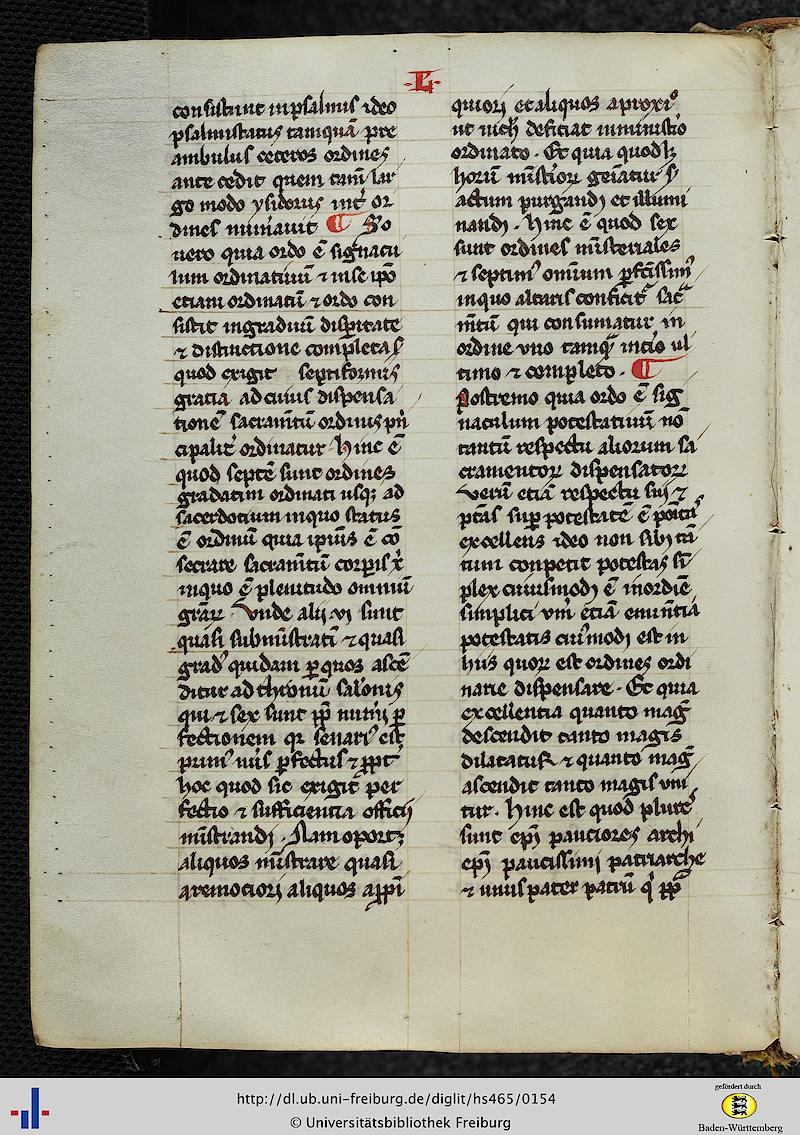 ·L·
consistunt in psalmis ideo
psalmistatus tamquā pre
ambulus ceteros ordines
ante cedit quem tam̄ lar
go modo ysidorus int̄ or
dines nūiauit ¶ Sꝫo
uero quia ordo ē signacu
lum ordinatiuū ⁊ in se ip̄o
etiam ordinatū ⁊ ordo con
sistit in graduū disparitate
⁊ distinctione completa ẜ
quod exigit septiformis
gratia ad cuius dispensa
tionē sacramētū ordinis pn̄
cipalit̄ ordinatur Hinc ē
quod septē sunt ordines
gradatim ordinati usqꝫ ad
sacerdotium in quo status
ē ordinū quia ipius̄ ē cō
secrare sacramētū corpis x̄
in quo ē plenitudo omniū
grar̄ꝝ Vnde alij vj sunt
quasi submīstrati ⁊ quasi
grad' quidam ꝑ quos ascē
ditur ad thronū salōnis
qui ⁊ sex sunt ꝓp̄ num̄ij ꝑ
fectionem qr senari' est
prim' nūs ꝑfectus ⁊ ꝓpt̄
hoc quod sic exigit̄ per
fectio ⁊ sufficiencia officij
mīstrandj · Nam oportꝫ
aliquos mīstrare quasi
a remociorj aliquos a ꝓpī
quiorj et aliquos a proxi°
ut nich̄ deficiat in mīstio
ordinato · Et quia quodlꝫ
horum mīstioꝝ geīatur ẜ
actum purgandj et illumi
nandj · Hinc ē quod sex
sunt ordines mīsteriales
⁊ septim' omīum ꝑfc̄issim'
in quo altaris conficit̄ sac̄
mītū qui consumatur in
ordine vno tamq̄ in tiō ul
timo ⁊ completo · ¶
Postremo quia ordo ē sig
naculum potestatiuū nō
tantū respectu aliorum sa
cramentoꝝ dispensatoꝝ
verū etiā respectu suj ⁊
ptās suꝑ potestatē ē potētī
excellens ideo non sibj tā
tum conpetit potestas sī
plex cuiusmodj ē in ordīe
simplici vm̄ etiā emin̄tia
potestatis cui'modj est in
hiis quoꝝ est ordines ordi
narie dispensare · Et quia
excellentia quanto maḡ
descendit tanto magis
dilatatur ⁊ quanto maḡ
ascendit tanto magis vni
tur · Hinc est quod plures
sunt ep̄j pauciores archi
ep̄j paucissimj patriarche
⁊ unus pater patrū q̄ ꝓp̄
http://dl.ub.uni-freiburg.de/diglit/hs465/0154
© Universitätsbibliothek Freiburg
gefördert durch
Baden-Württemberg